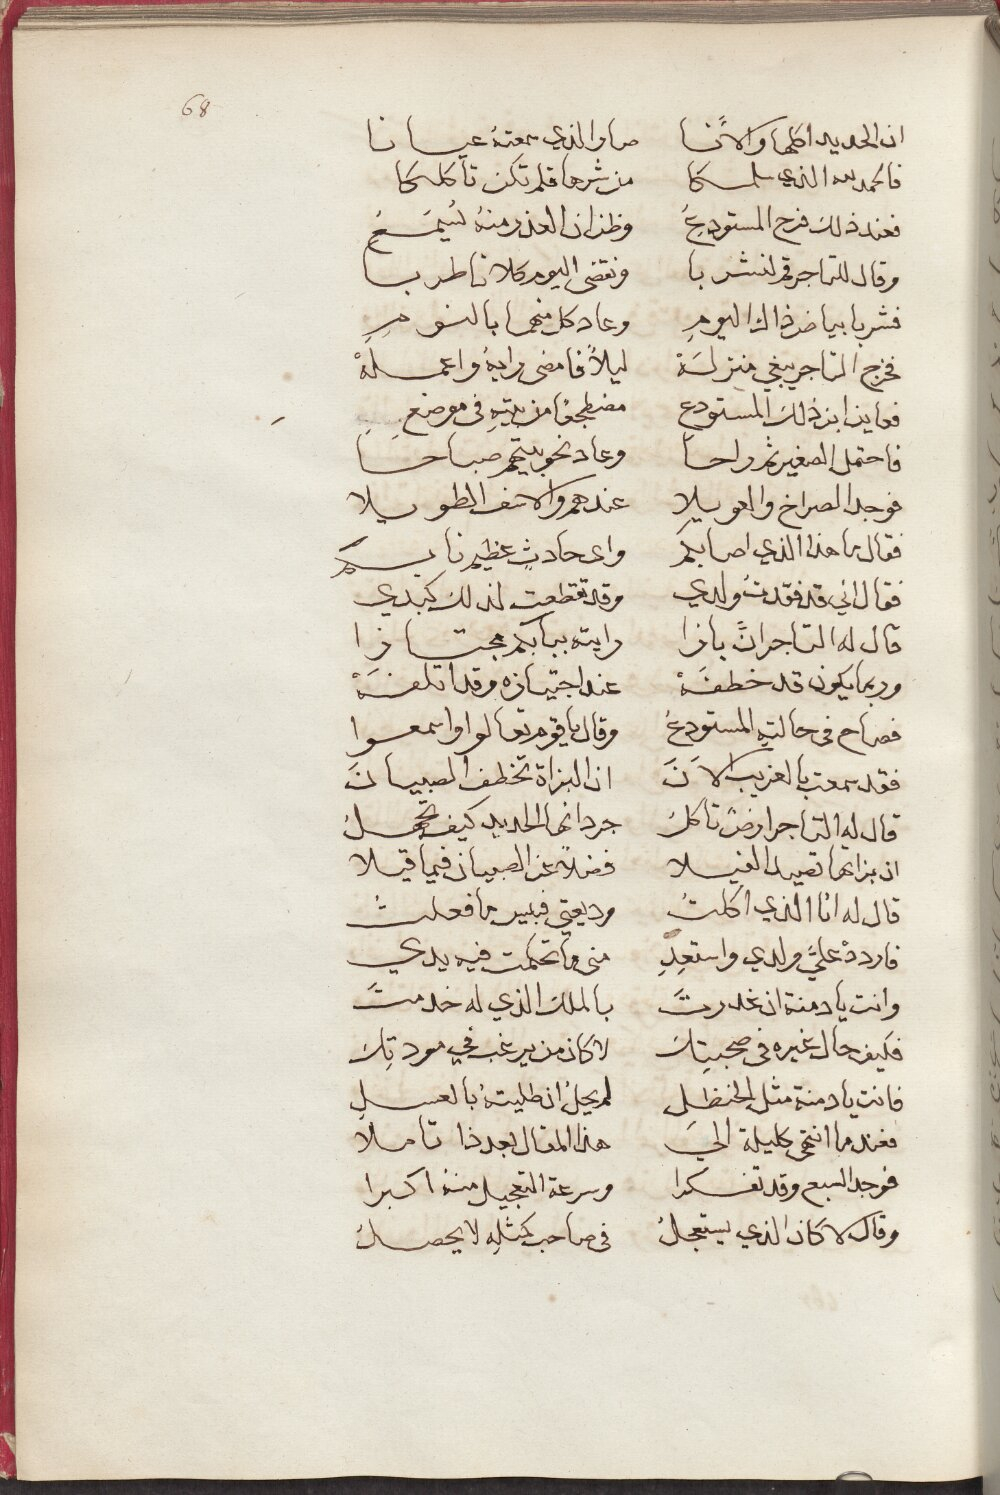 68
ان الحديد اكلها والآنا صار الذي سمعته عيانا
فالحمد لله الذي سلمكا من شرها فلم تكن تاكلكا
فعند ذلك فرح المستودعُ وظن ان العذر منهُ يُسمَعُ
وقال للتاجر قم لنشربا ونقضي اليوم كلانا طربا
فشربا بياض ذاك اليومِ وعاد كل منهما بالنومِ
فخرج التاجر يبغي منزلَهْ ليلاً فامضى رايهُ واعملَهْ
فعاين ابن ذلك المستودعِ مضطجعًا من بيتهِ في موضعِ
فاحتمل الصغير ثم راحا وعاد نحو بيتهم صباحا
فوجد الصراخ والعويلا عندهم والاسف الطويلا
فقال ما هذا الذي اصابكم واي حادثٍ عظيم نابكم
فقال اني قد فقدتُ ولدي وقد تقطعت لذلك كبدي
قال له التاجر انَّ بازا رايته ببابكم مجتازا
وربما يكون قد خطفَهْ عند اجتيازه وقد اتلفَهْ
فصاح في حالتهِ المستودعُ وقال يا قوم تعالوا واسمعوا
فقد سمعت بالغريب الآنَ ان البزاة تخطف الصبيانَ
قال له التاجر ارضٌ تاكلُ جرذانها الحديد كيف تجهلُ
ان بزاتها تصيد الفيلا فضلاً عن الصبيان فيما قيلا
قال له انا الذي اكلتُ وديعتي فبئس ما فعلتُ
فاردد عليَّ ولدي واستعِدِ مني ما تحكمت فيه يدي
وانت يا دمنة ان غدرتَ بالملك الذي له خدمتَ
فكيف حال غيره في صحبتِكَ لا كان من يرغب في مودتِكَ
فانت يا دمنة مثل الحنظلِ لم يحلُ ان طليتهُ بالعسلِ
فعند ما انتهى كليلة الىَ هذا المقال بعد ذا تاملا
فوجد السبع وقد تفكرا وسرعة التعجيل منهُ اكبرا
وقال لا كان الذي يستعجلُ في صاحب كمثلهِ لا يحصلُ